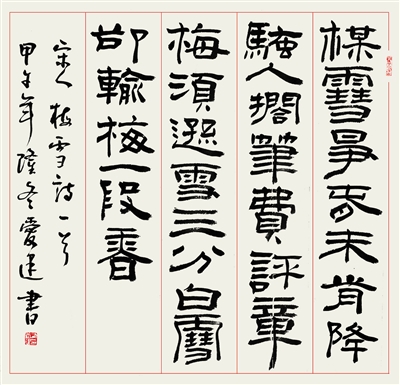 楳雪爭春未肯降
騷人擱筆費評章
梅須遜雪三分白雪
却輸梅一段香
宋人梅雪詩一首
甲午年隆冬愛書